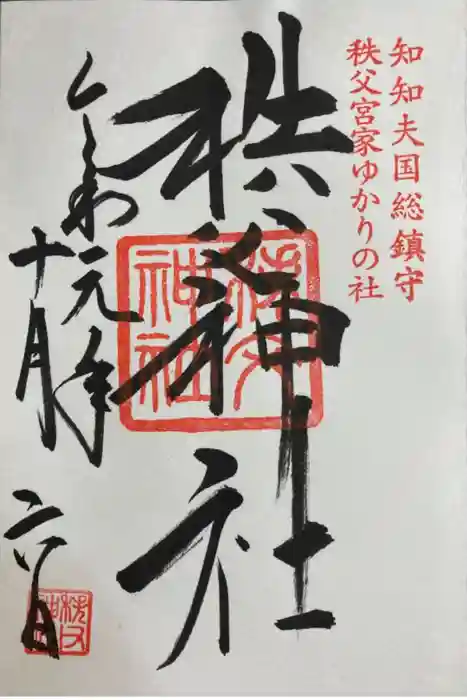 知知夫国総鎮守
秩父宮家ゆかりの社
秩父神社
秩父神社
令和元年
十月六日
秩父神社